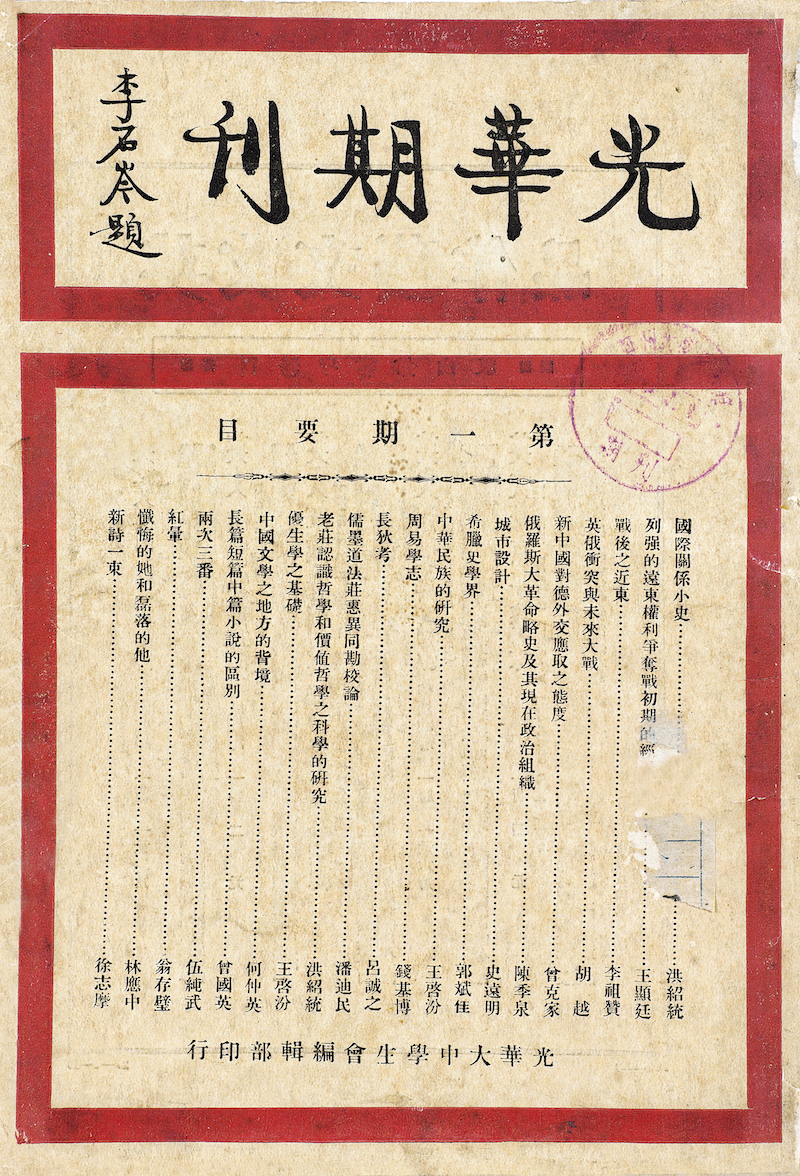 光華期刊
李石岑題
第一期要目
國際關係小史……洪紹統
列强的遠東權利爭奪戰初期的經……王顯廷
戰後之近東……李祖贊
英俄衝突與未來大戰……胡越
新中國對德外交應取之態度……曾克家
俄羅斯大革命略史及其現在政治組織……陳季泉
城市設計……史遠明
希臘史學界……郭斌佳
中華民族的研究……王啓汾
周易學志……錢基博
長狄考……呂誠之
儒墨道法莊惠異同勘校論……潘迪民
老莊認識哲學和價值哲學之科學的研究……洪紹統
優生學之基礎……王啓汾
中國文學之地方的背境……何仲英
長篇短篇中篇小說的區別……曾國英
兩次三番……伍純武
紅暈……翁存璧
懺悔的她和磊落的他……林應中
新詩一束……徐志摩
光華大中學生會編輯部印行